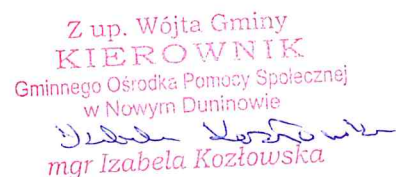 Z up. Wójta Gminy
KIEROWNIK
Gminnego Ośrodka Pomocy Społecznej
w Nowym Duninowie
Izabela Kozłowska
mgr Izabela Kozłowska